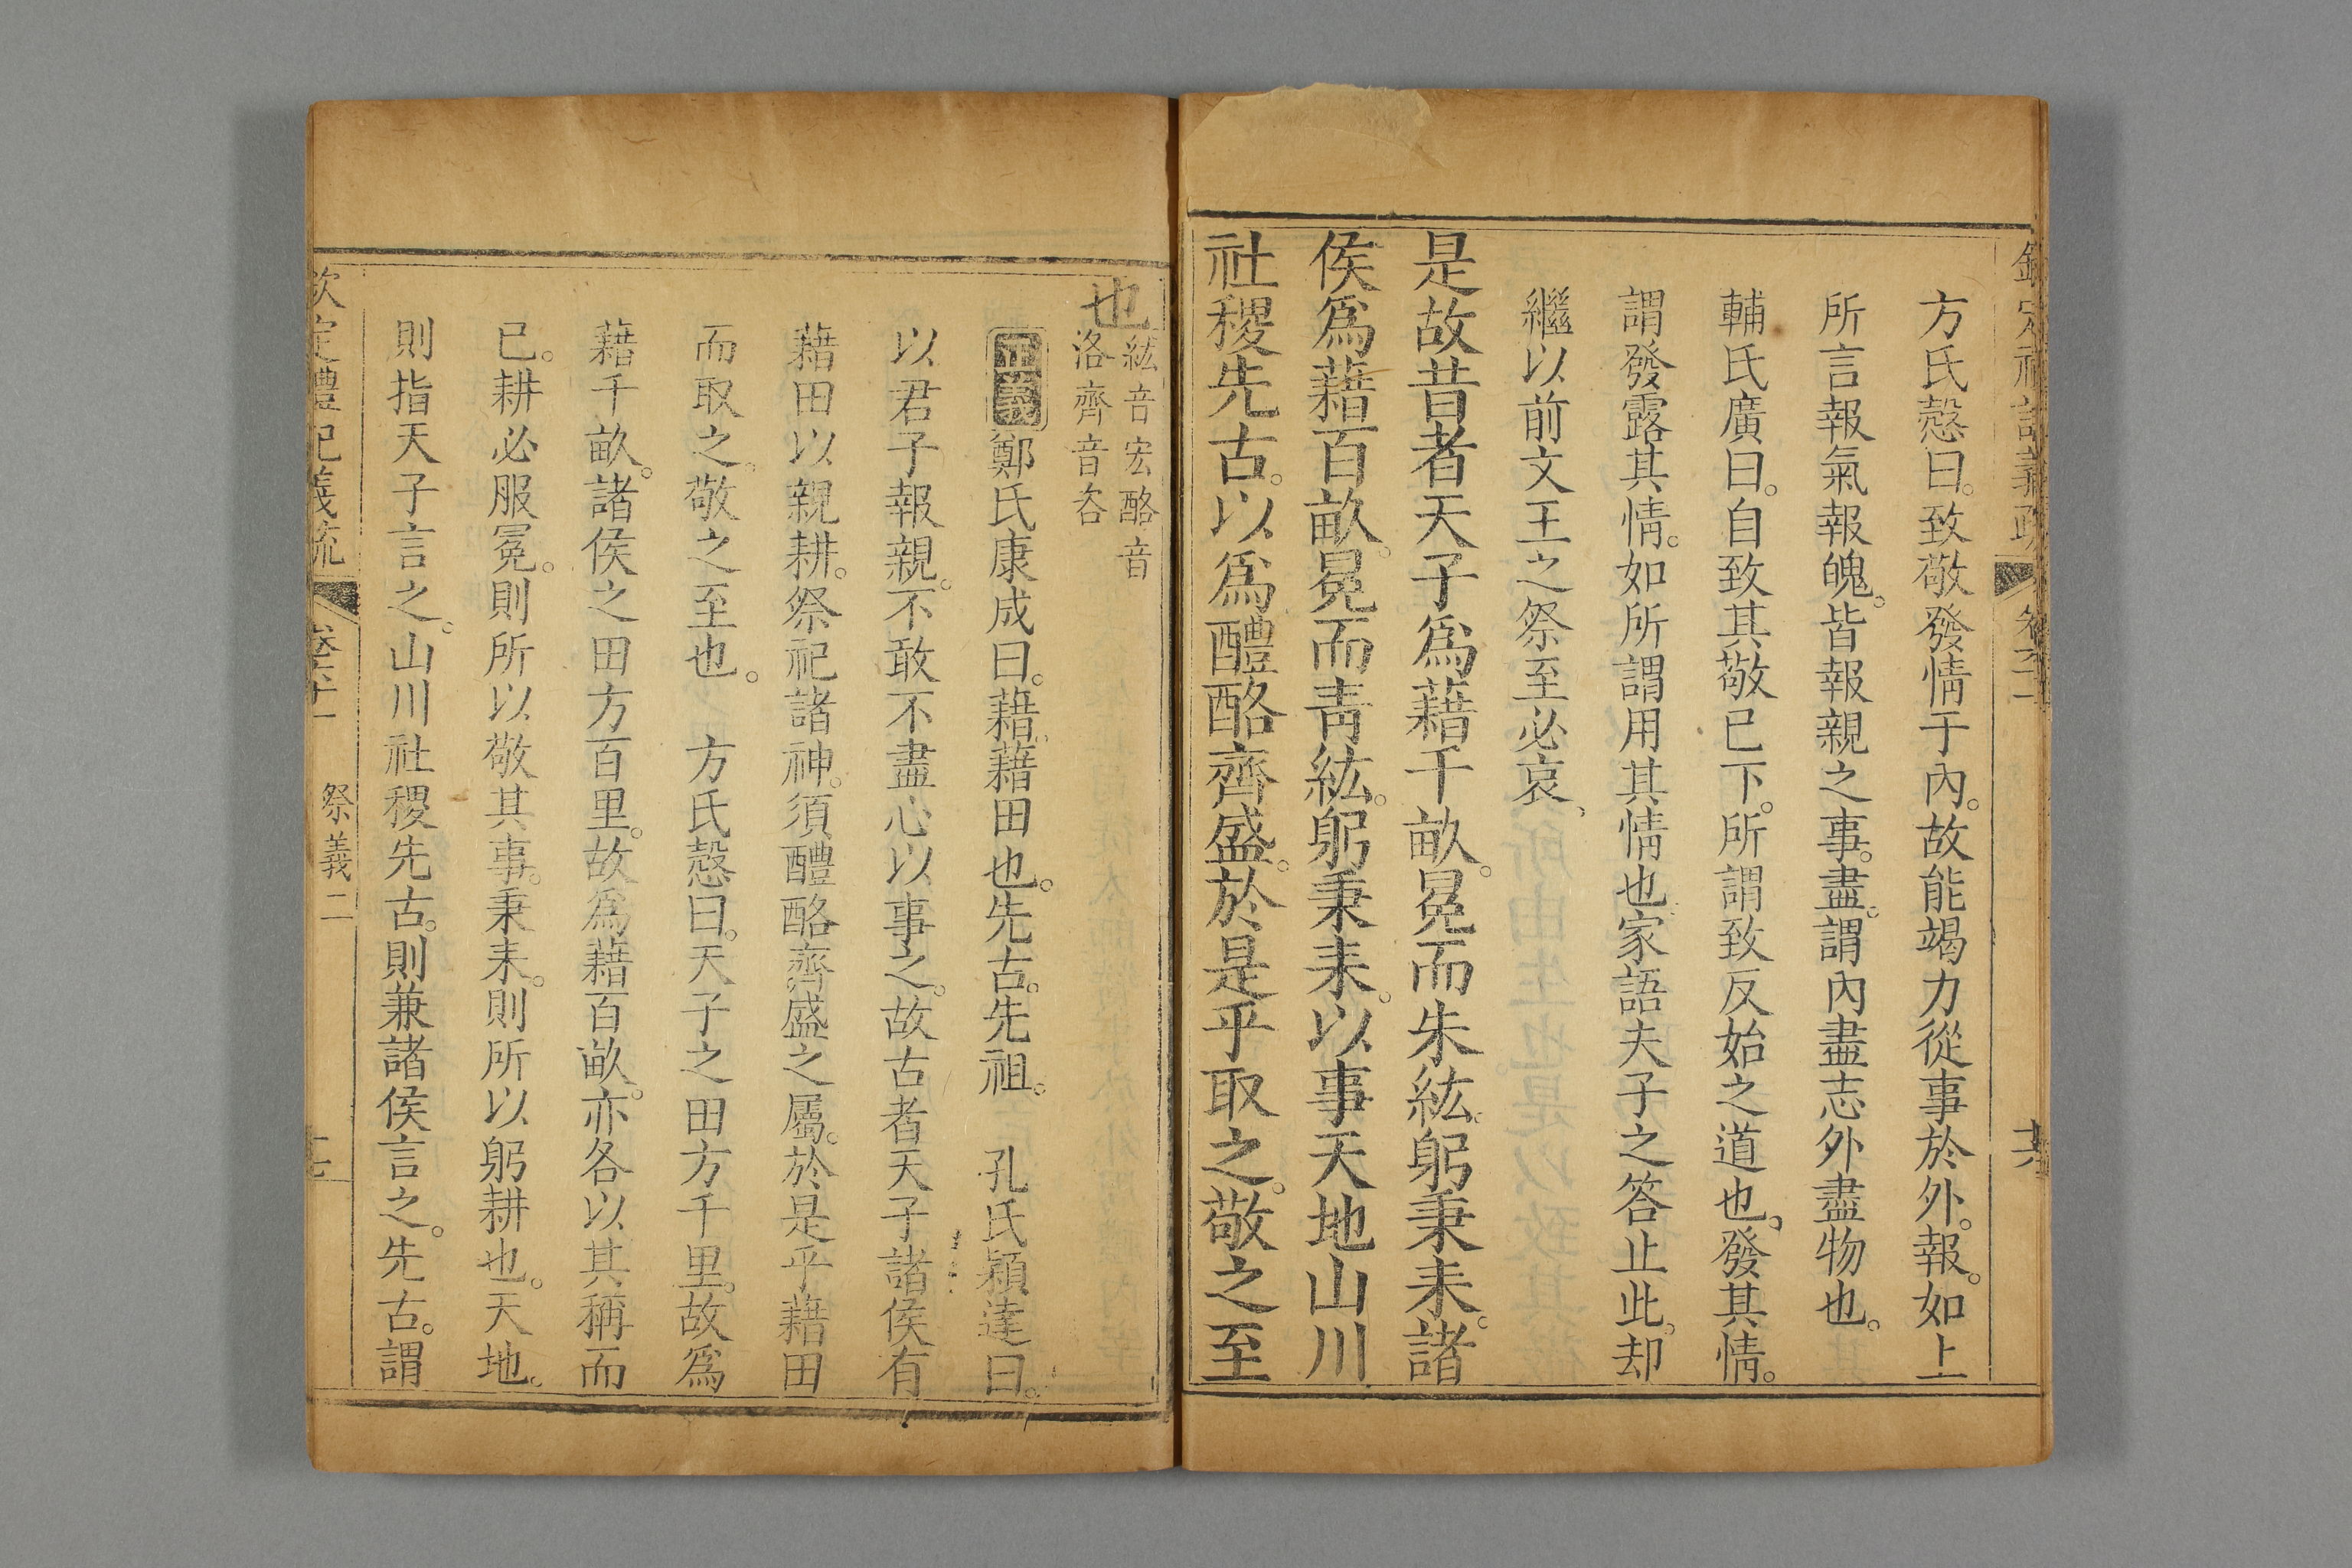 欽定禮記義疏 卷六十一 六
方氏慤曰。致敬發情于內。故能竭力從事於外。報。如上
所言報氣報魄。皆報親之事。盡。謂內盡志外盡物也。
輔氏廣曰。自致其敬已下。所謂致反始之道也。發其情。
謂發露其情。如所謂用其情也家語夫子之答止此。却
繼以前文王之祭至必哀、
是故昔者天子爲藉千畝。冕而朱紘。躬秉耒。諸
侯爲藉百畝。冕而靑紘。躬秉耒。以事天地山川
社稷先古。以爲醴酪齊盛。於是乎取之。敬之至
也
紘音宏酪音
洛齊音咨
正義鄭氏康成曰。藉藉田也。先古。先祖。 孔氏穎達曰。
以君子報親。不敢不盡心以事之。故古者天子諸侯有
藉田以親耕。祭祀諸神。須醴酪齊盛之屬。於是乎藉田
而取之。敬之至也。 方氏慤曰。天子之田方千里。故爲
藉千畝。諸侯之田方百里。故爲藉百畝。亦各以其稱而
已。耕必服冕。則所以敬其事。秉耒。則所以躬耕也。天地。
則指天子言之。山川社稷先古。則兼諸侯言之。先古。謂
欽定禮記義疏 卷六十一 祭義二